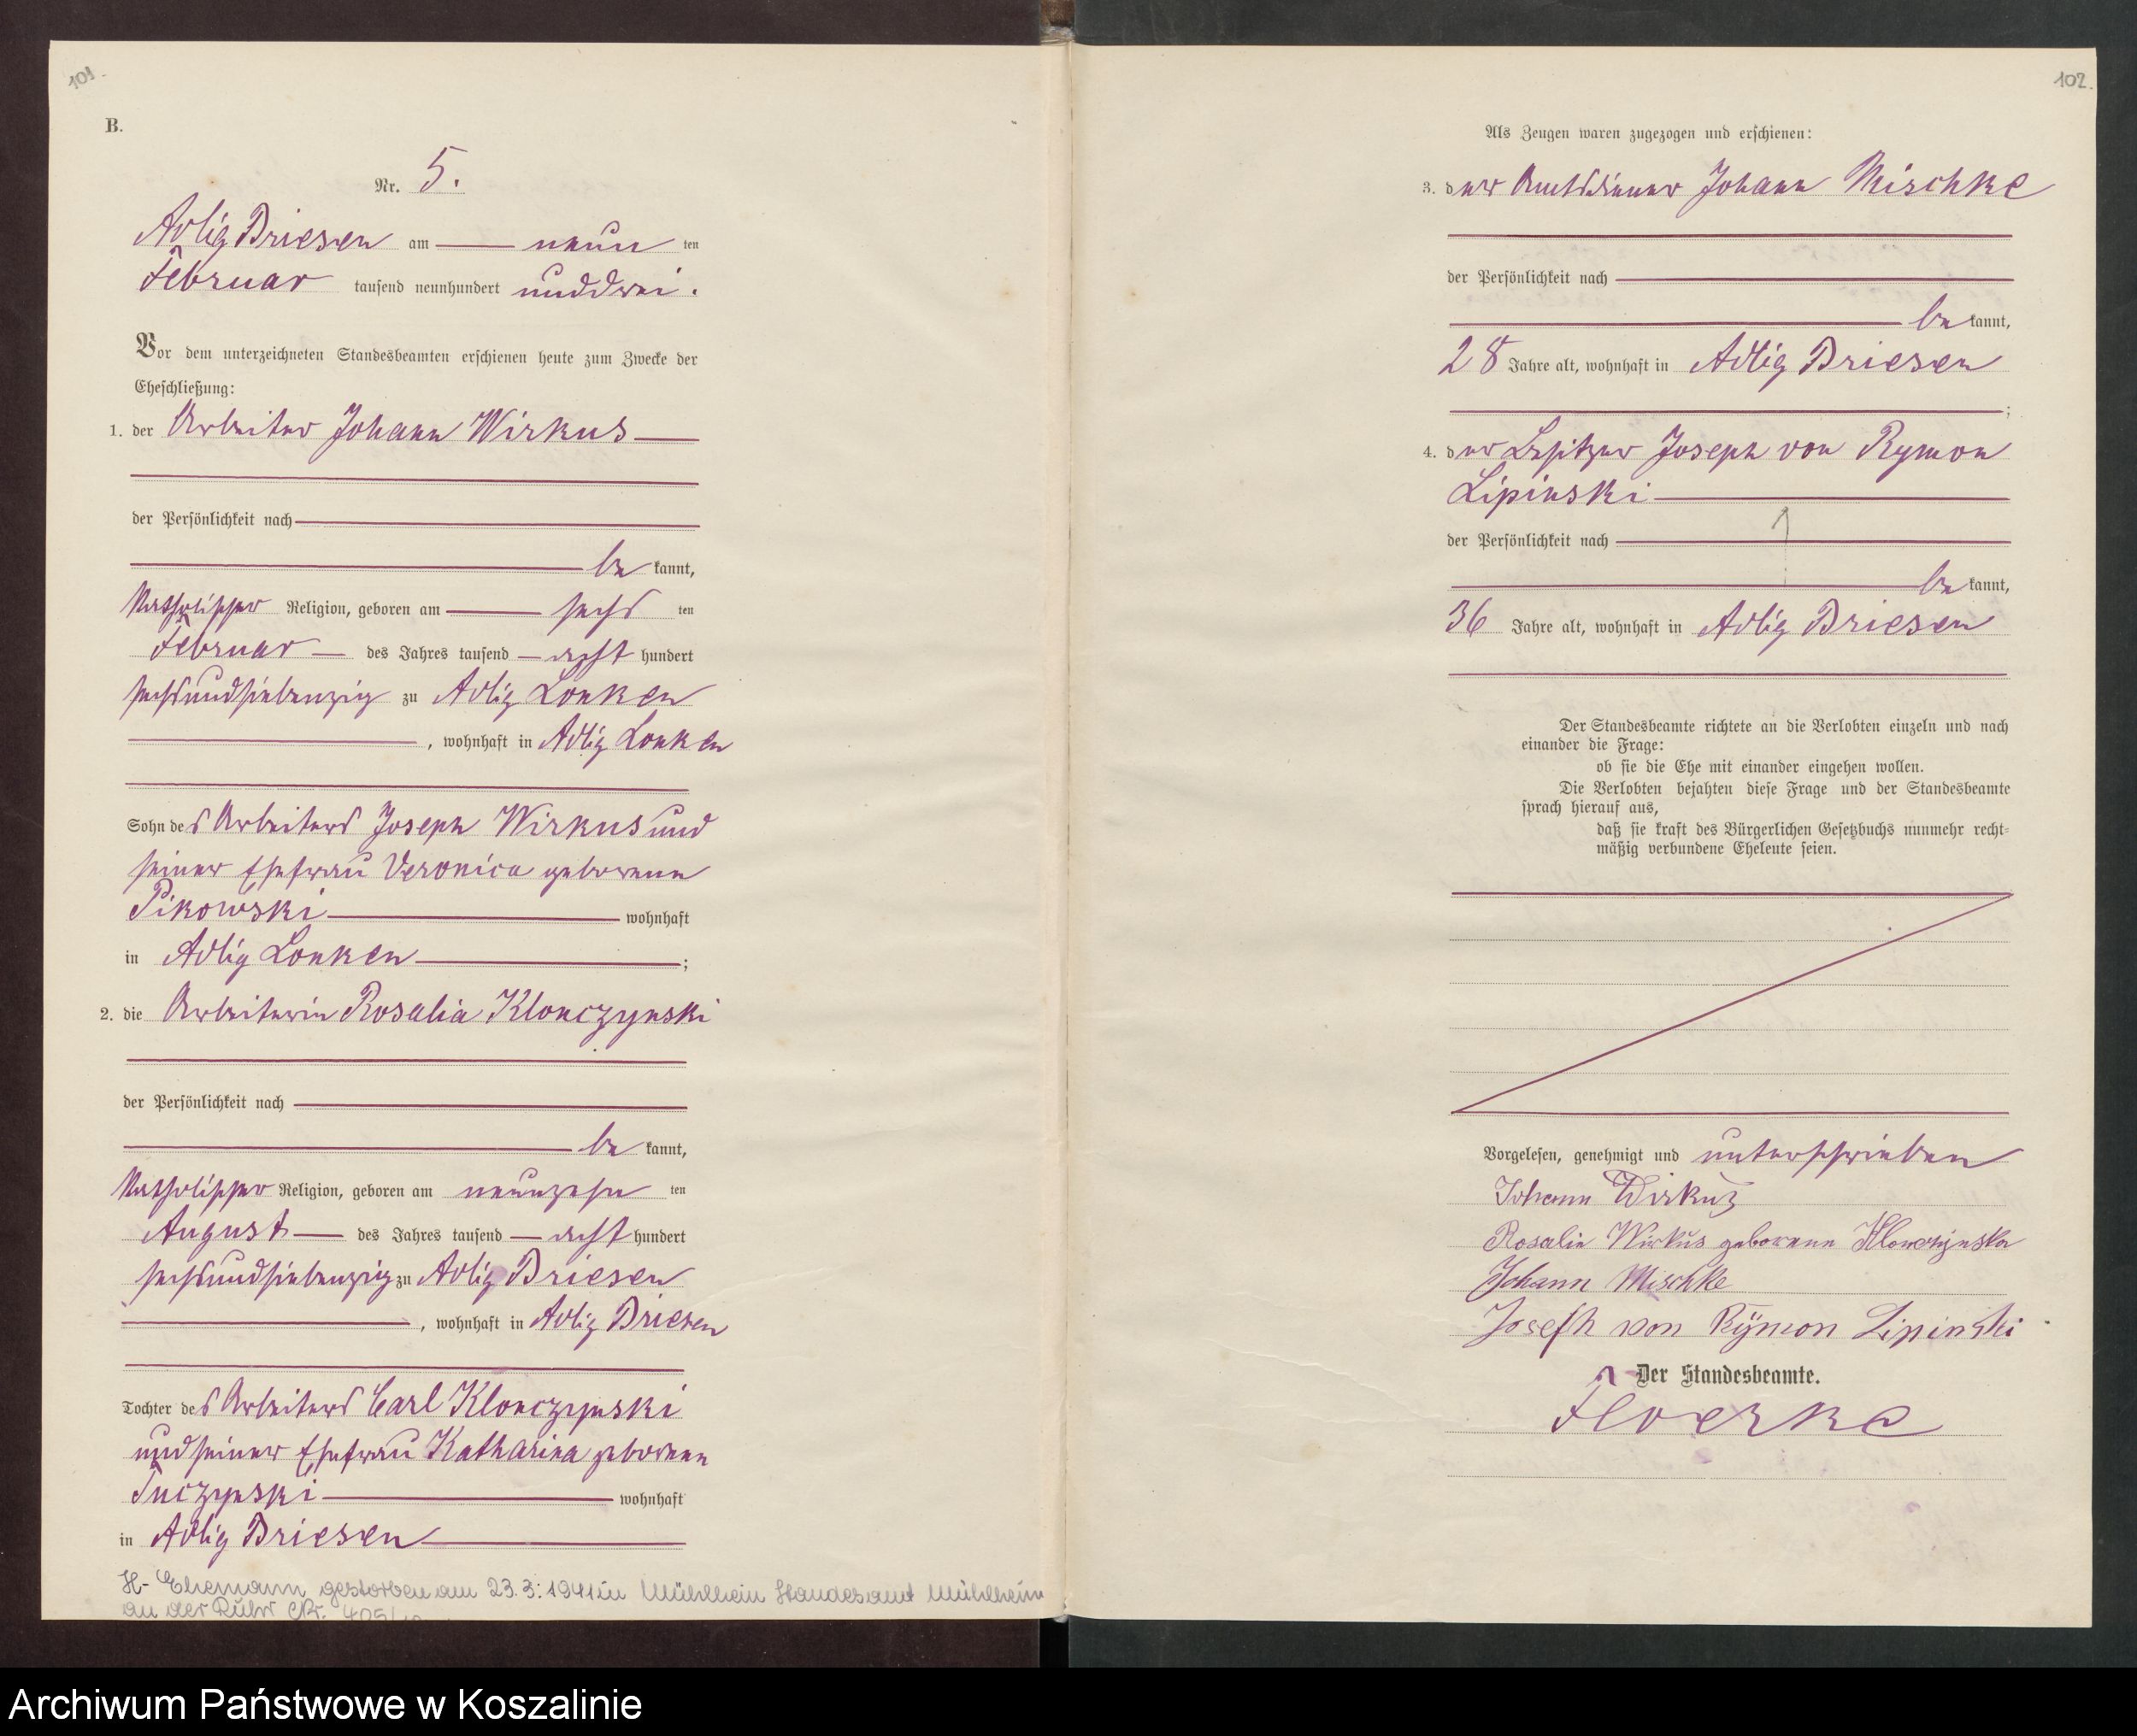 101.
B.
Nr. 5.
Adlig Briesen am neun ten
Februar tausend neunhundert undzwei.
Vor dem unterzeichneten Standesbeamten erschienen heute zum Zwecke der
Eheschließung:
1. der Arbeiter Johann Wirkus
der Persönlichkeit nach
be kannt,
katholischer Religion, geboren am sechs ten
Februar des Jahres tausend acht hundert
sechsundsiebenzig zu Adlig Lonken
, wohnhaft in Adlig Lonken
Sohn des Arbeiters Joseph Wirkus und
seiner Ehefrau Veronica geborene
Pikowski wohnhaft
in Adlig Lonken ;
2. die Arbeiterin Rosalia Klonczynski
der Persönlichkeit nach
be kannt,
katholischer Religion, geboren am neunzehn ten
August des Jahres tausend acht hundert
sechsundsiebenzig zu Adlig Briesen
, wohnhaft in Adlig Briesen
Tochter des Arbeiters Carl Klonczynski
und seiner Ehefrau Katharina geborene
Tuczynski wohnhaft
in Adlig Briesen
H- Ehemann gestorben am 23.3.1941 in Mühlheim Standesamt Mühlheim
an der Ruhr Nr. 405/
102.
Als Zeugen waren zugezogen und erschienen:
3. der Amtsdiener Johann Mischke
der Persönlichkeit nach
be kannt,
28 Jahre alt, wohnhaft in Adlig Briesen
;
4. der Besitzer Joseph von Rymon
Lipinski
der Persönlichkeit nach
be kannt,
36 Jahre alt, wohnhaft in Adlig Briesen
Der Standesbeamte richtete an die Verlobten einzeln und nach
einander die Frage:
ob sie die Ehe mit einander eingehen wollen.
Die Verlobten bejahten diese Frage und der Standesbeamte
sprach hierauf aus,
daß sie kraft des Bürgerlichen Gesetzbuchs nunmehr recht-
mäßig verbundene Eheleute seien.
Vorgelesen, genehmigt und unterschrieben
Johann Wirkus
Rosalia Wirkus geborene Klonczynska
Johann Mischke
Joseph von Rÿmon Lipinski
Der Standesbeamte.
Floerke
Archiwum Państwowe w Koszalinie